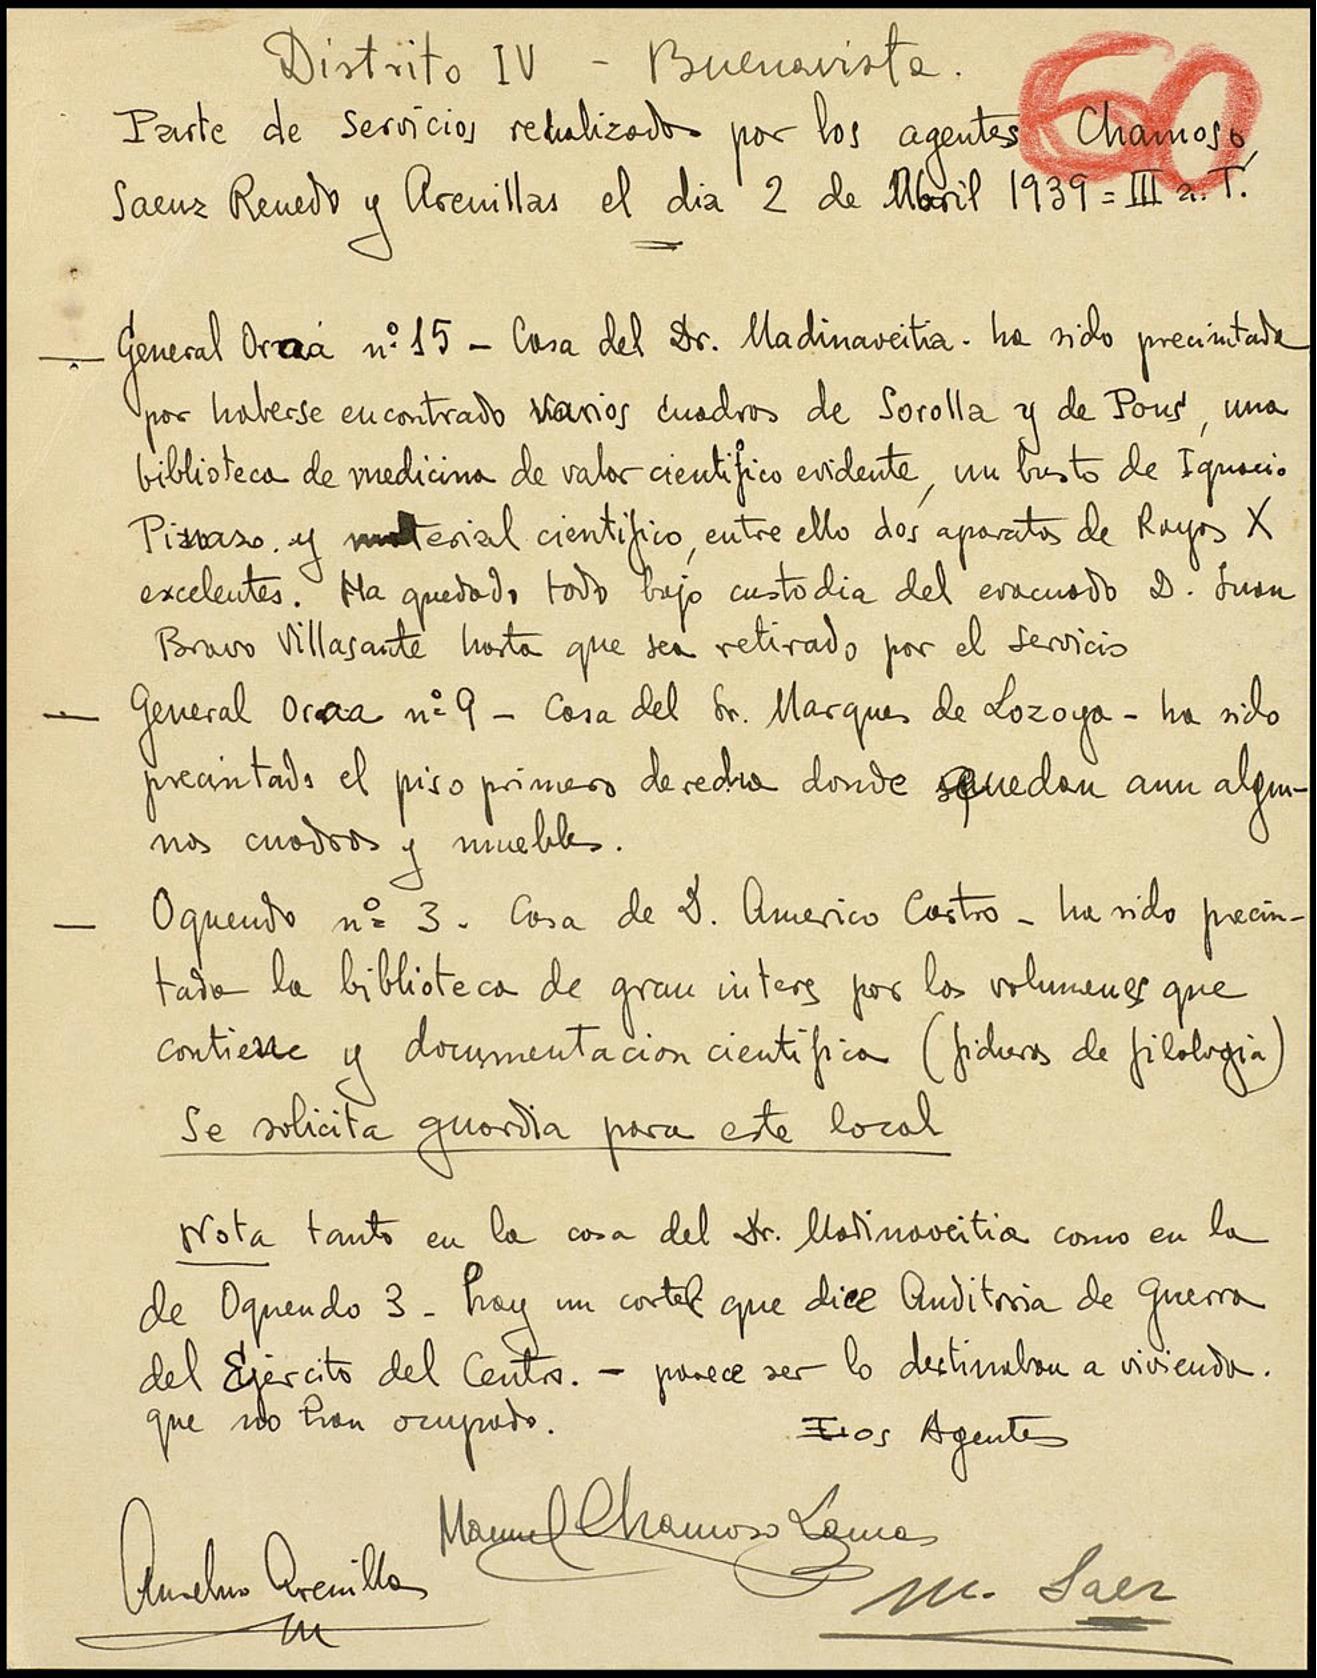 Distrito IV - Buenavista.
60
Parte de Servicios realizados por los agentes Chamoso,
Saenz Renedo y Arenillas el dia 2 de Abril 1939 = III a. T.
— General Oraá nº 15 - Casa del Dr. Madinaveitia - ha sido precintada
por haberse encontrado varios cuadros de Sorolla y de Pons, una
biblioteca de medicina de valor cientifico evidente, un busto de Ignacio
Pinazo. y material cientifico, entre ello dos aparatos de Rayos X
excelentes. Ha quedado todo bajo custodia del evacuado D. Juan
Bravo Villasante hasta que sea retirado por el servicio
— General Oraa nº 9 - Casa del Sr. Marques de Lozoya - ha sido
precintado el piso primero derecha donde quedan aun algu-
nos cuadros y muebles.
— Oquendo nº 3. Casa de D. Americo Castro - ha sido precin-
tada la biblioteca de gran interes por los volumenes que
contiene y documentacion cientifica (ficheros de filologia)
Se solicita guardia para este local
Nota tanto en la casa del Dr. Madinaveitia como en la
de Oquendo 3 - hay un cartel que dice Auditoria de Guerra
del Ejército del Centro. - parece ser lo destinaban a vivienda.
que no han ocupado.
Los Agentes
Manuel Chamoso Lamas
Anselmo Arenillas
M. Saez